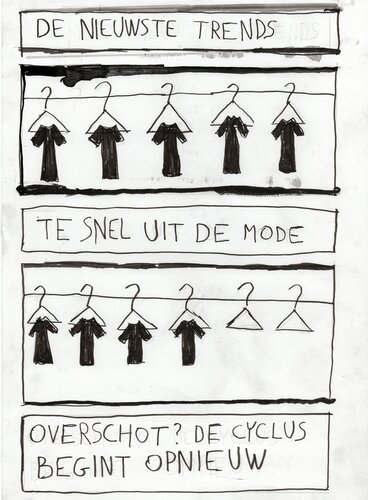 DE NIEUWSTE TRENDS
TE SNEL UIT DE MODE
OVERSCHOT? DE CYCLUS
BEGINT OPNIEUW